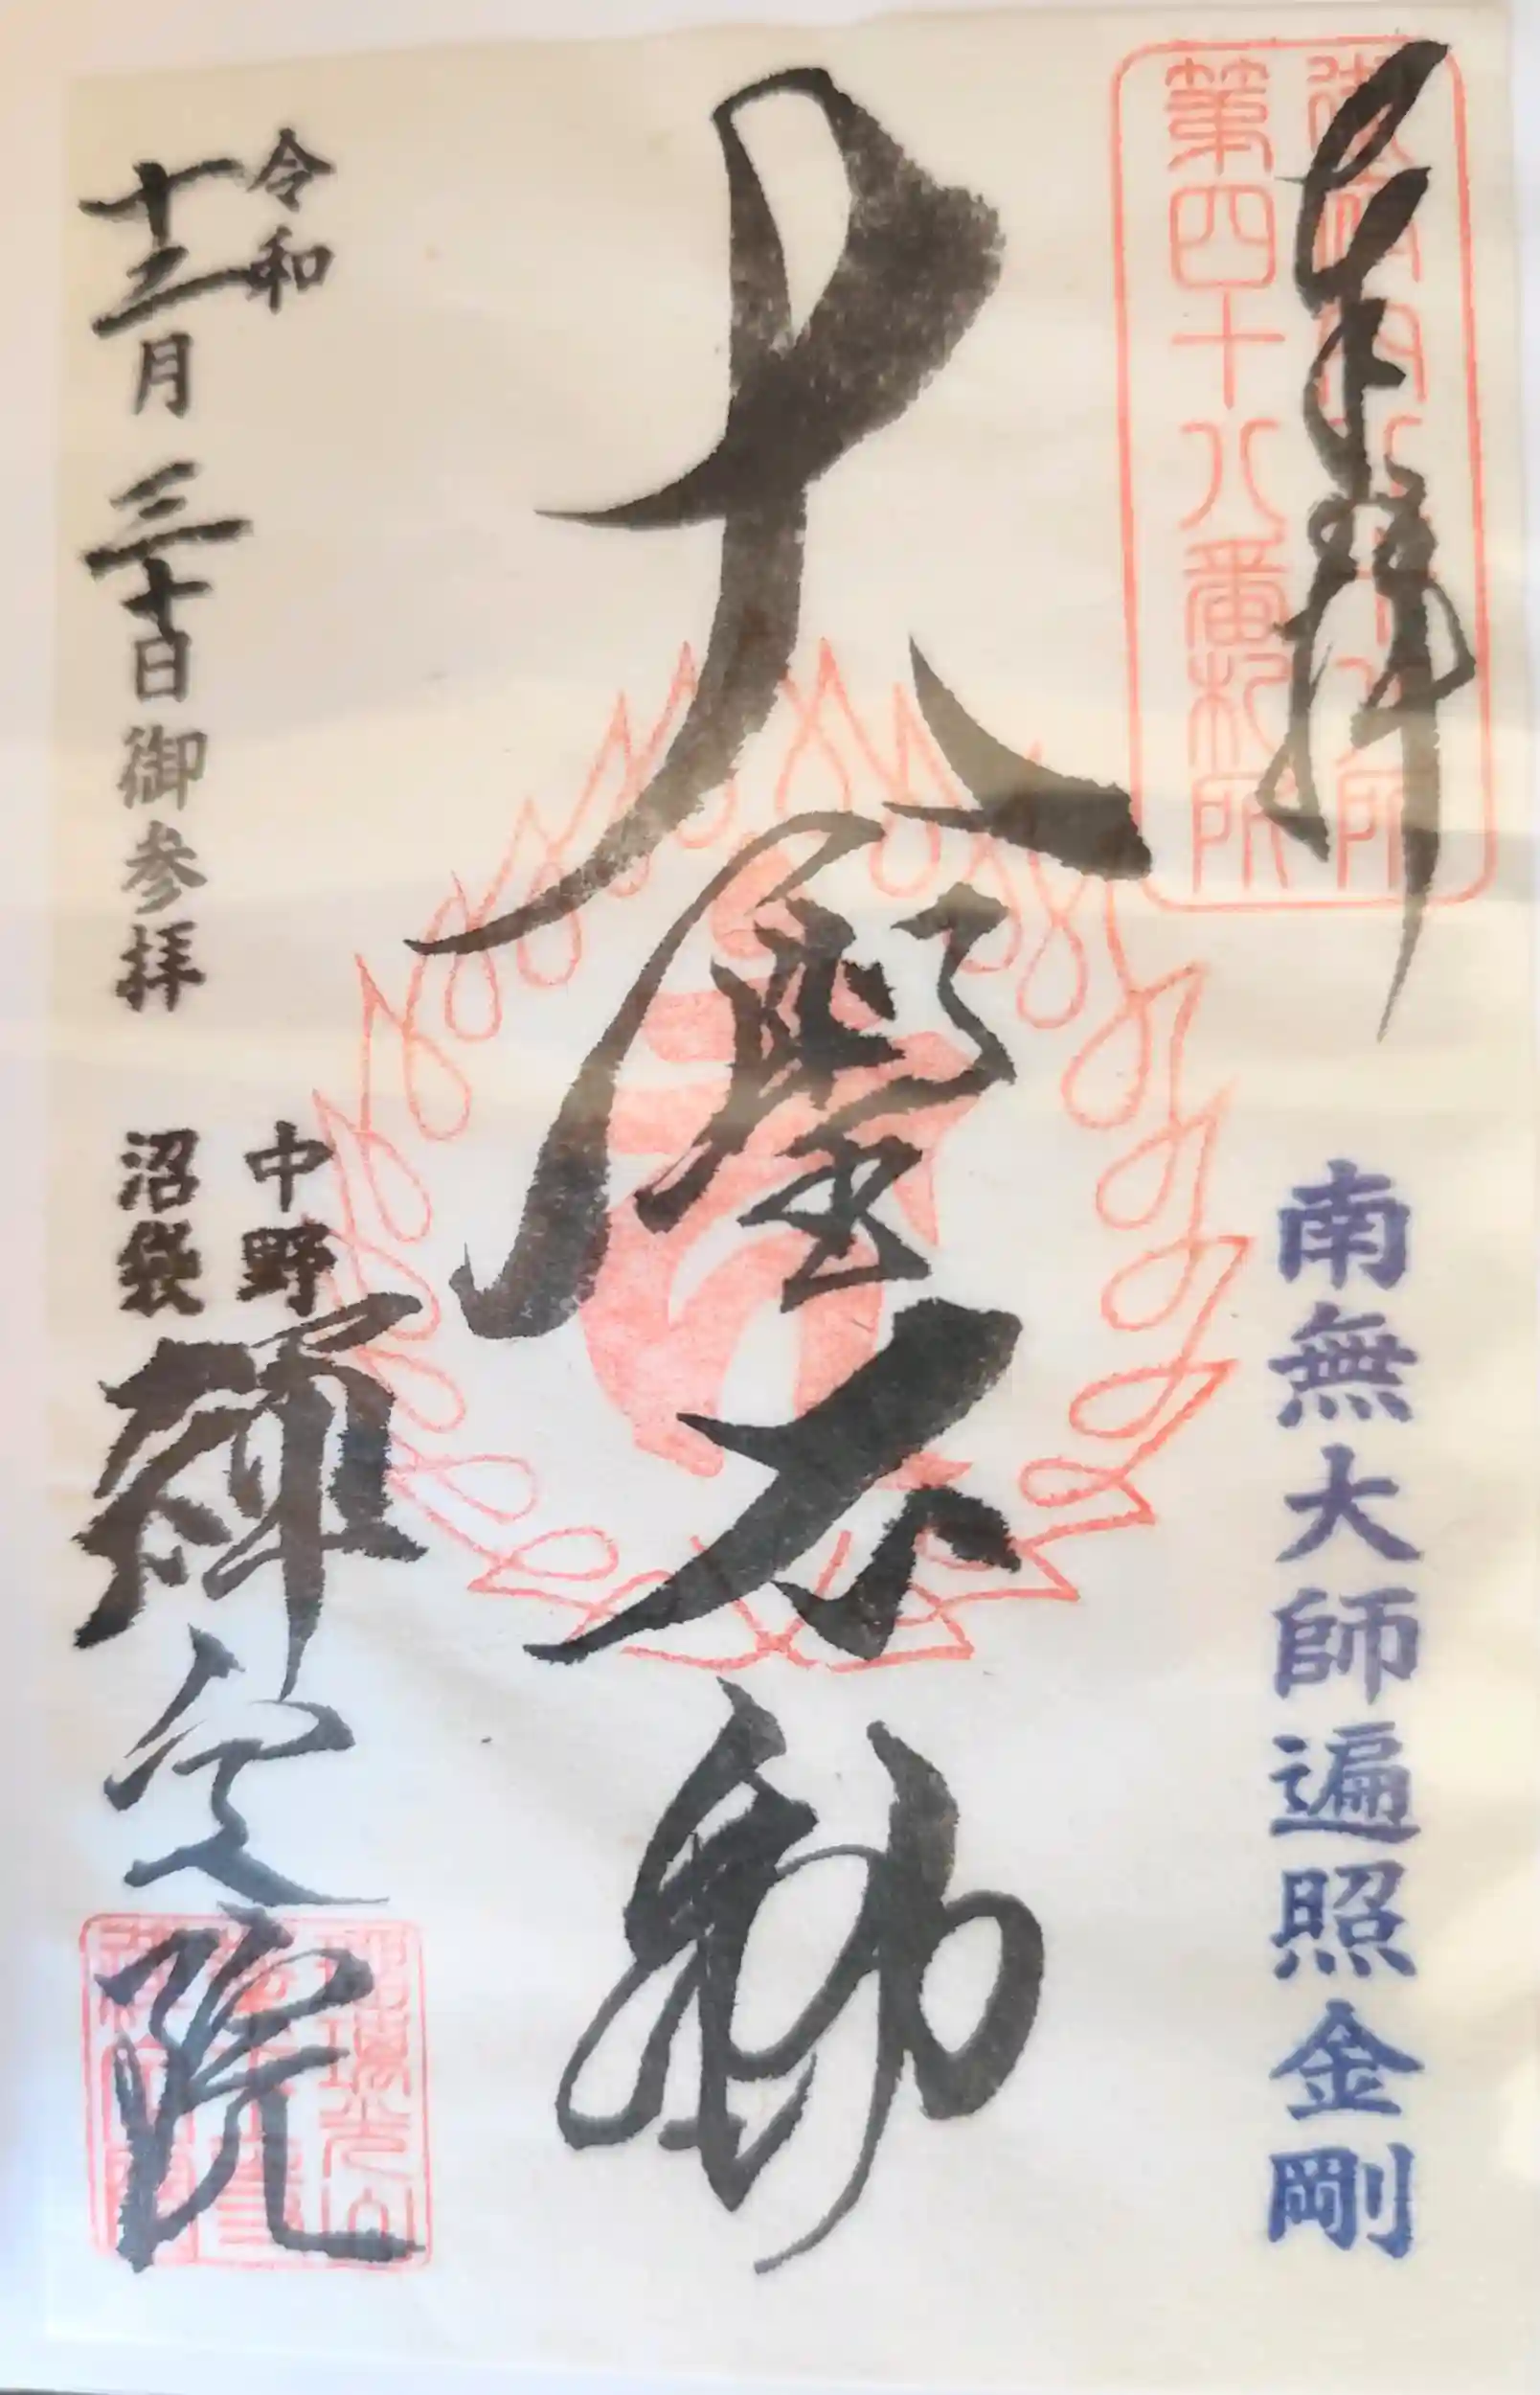 奉拝
第四十八番札所
南無大師遍照金剛
大聖不動
令和
十二月三十日御参拝
中野
沼袋
禅定院